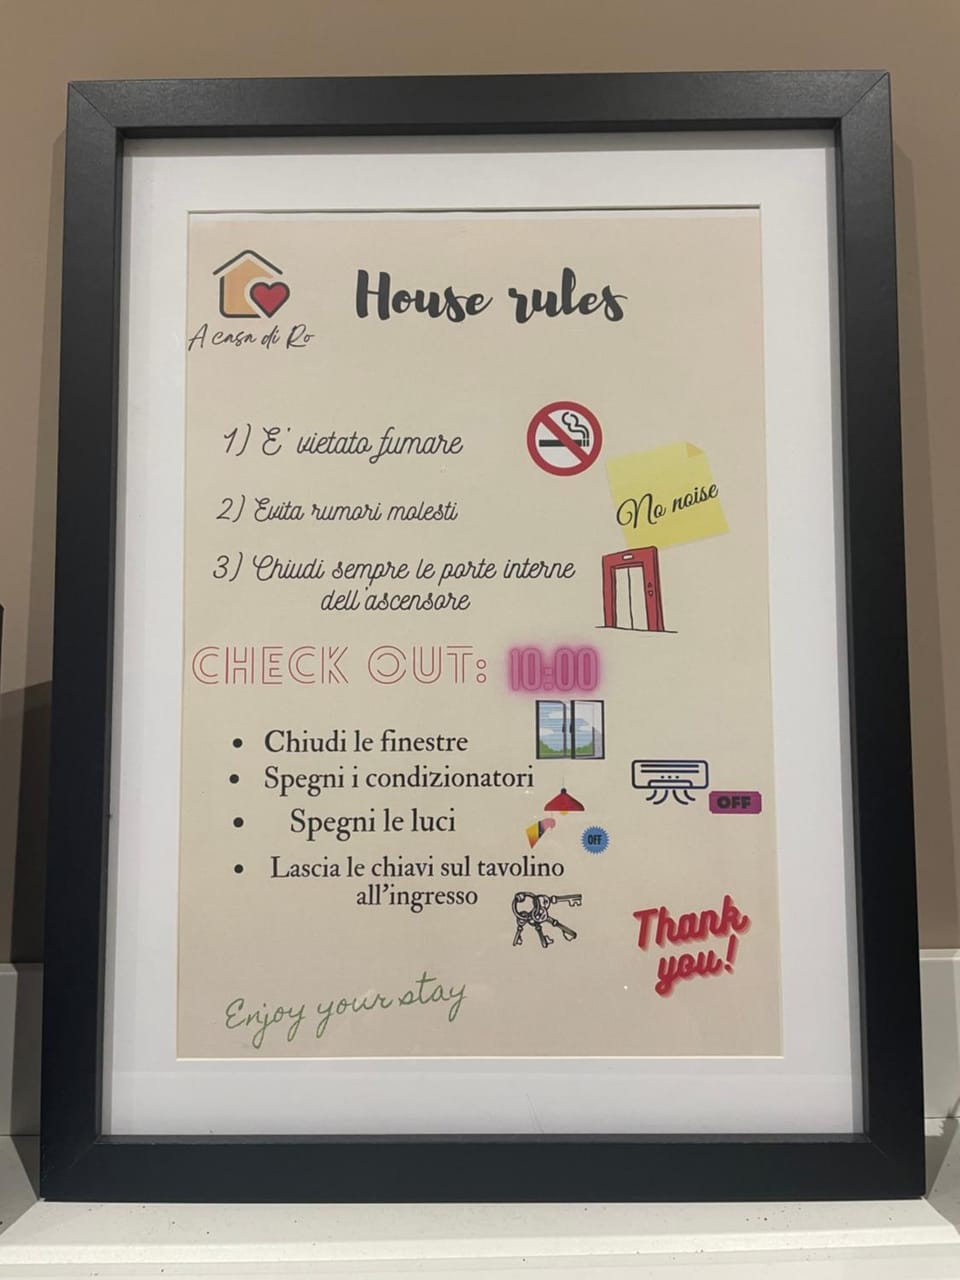 House rules
A casa di Ro
1) E' vietato fumare
2) Evita rumori molesti
No noise
3) Chiudi sempre le porte interne
dell'ascensore
CHECK OUT: 10:00
• Chiudi le finestre
• Spegni i condizionatori
OFF
• Spegni le luci
OFF
• Lascia le chiavi sul tavolino
all'ingresso
Thank
you!
Enjoy your stay